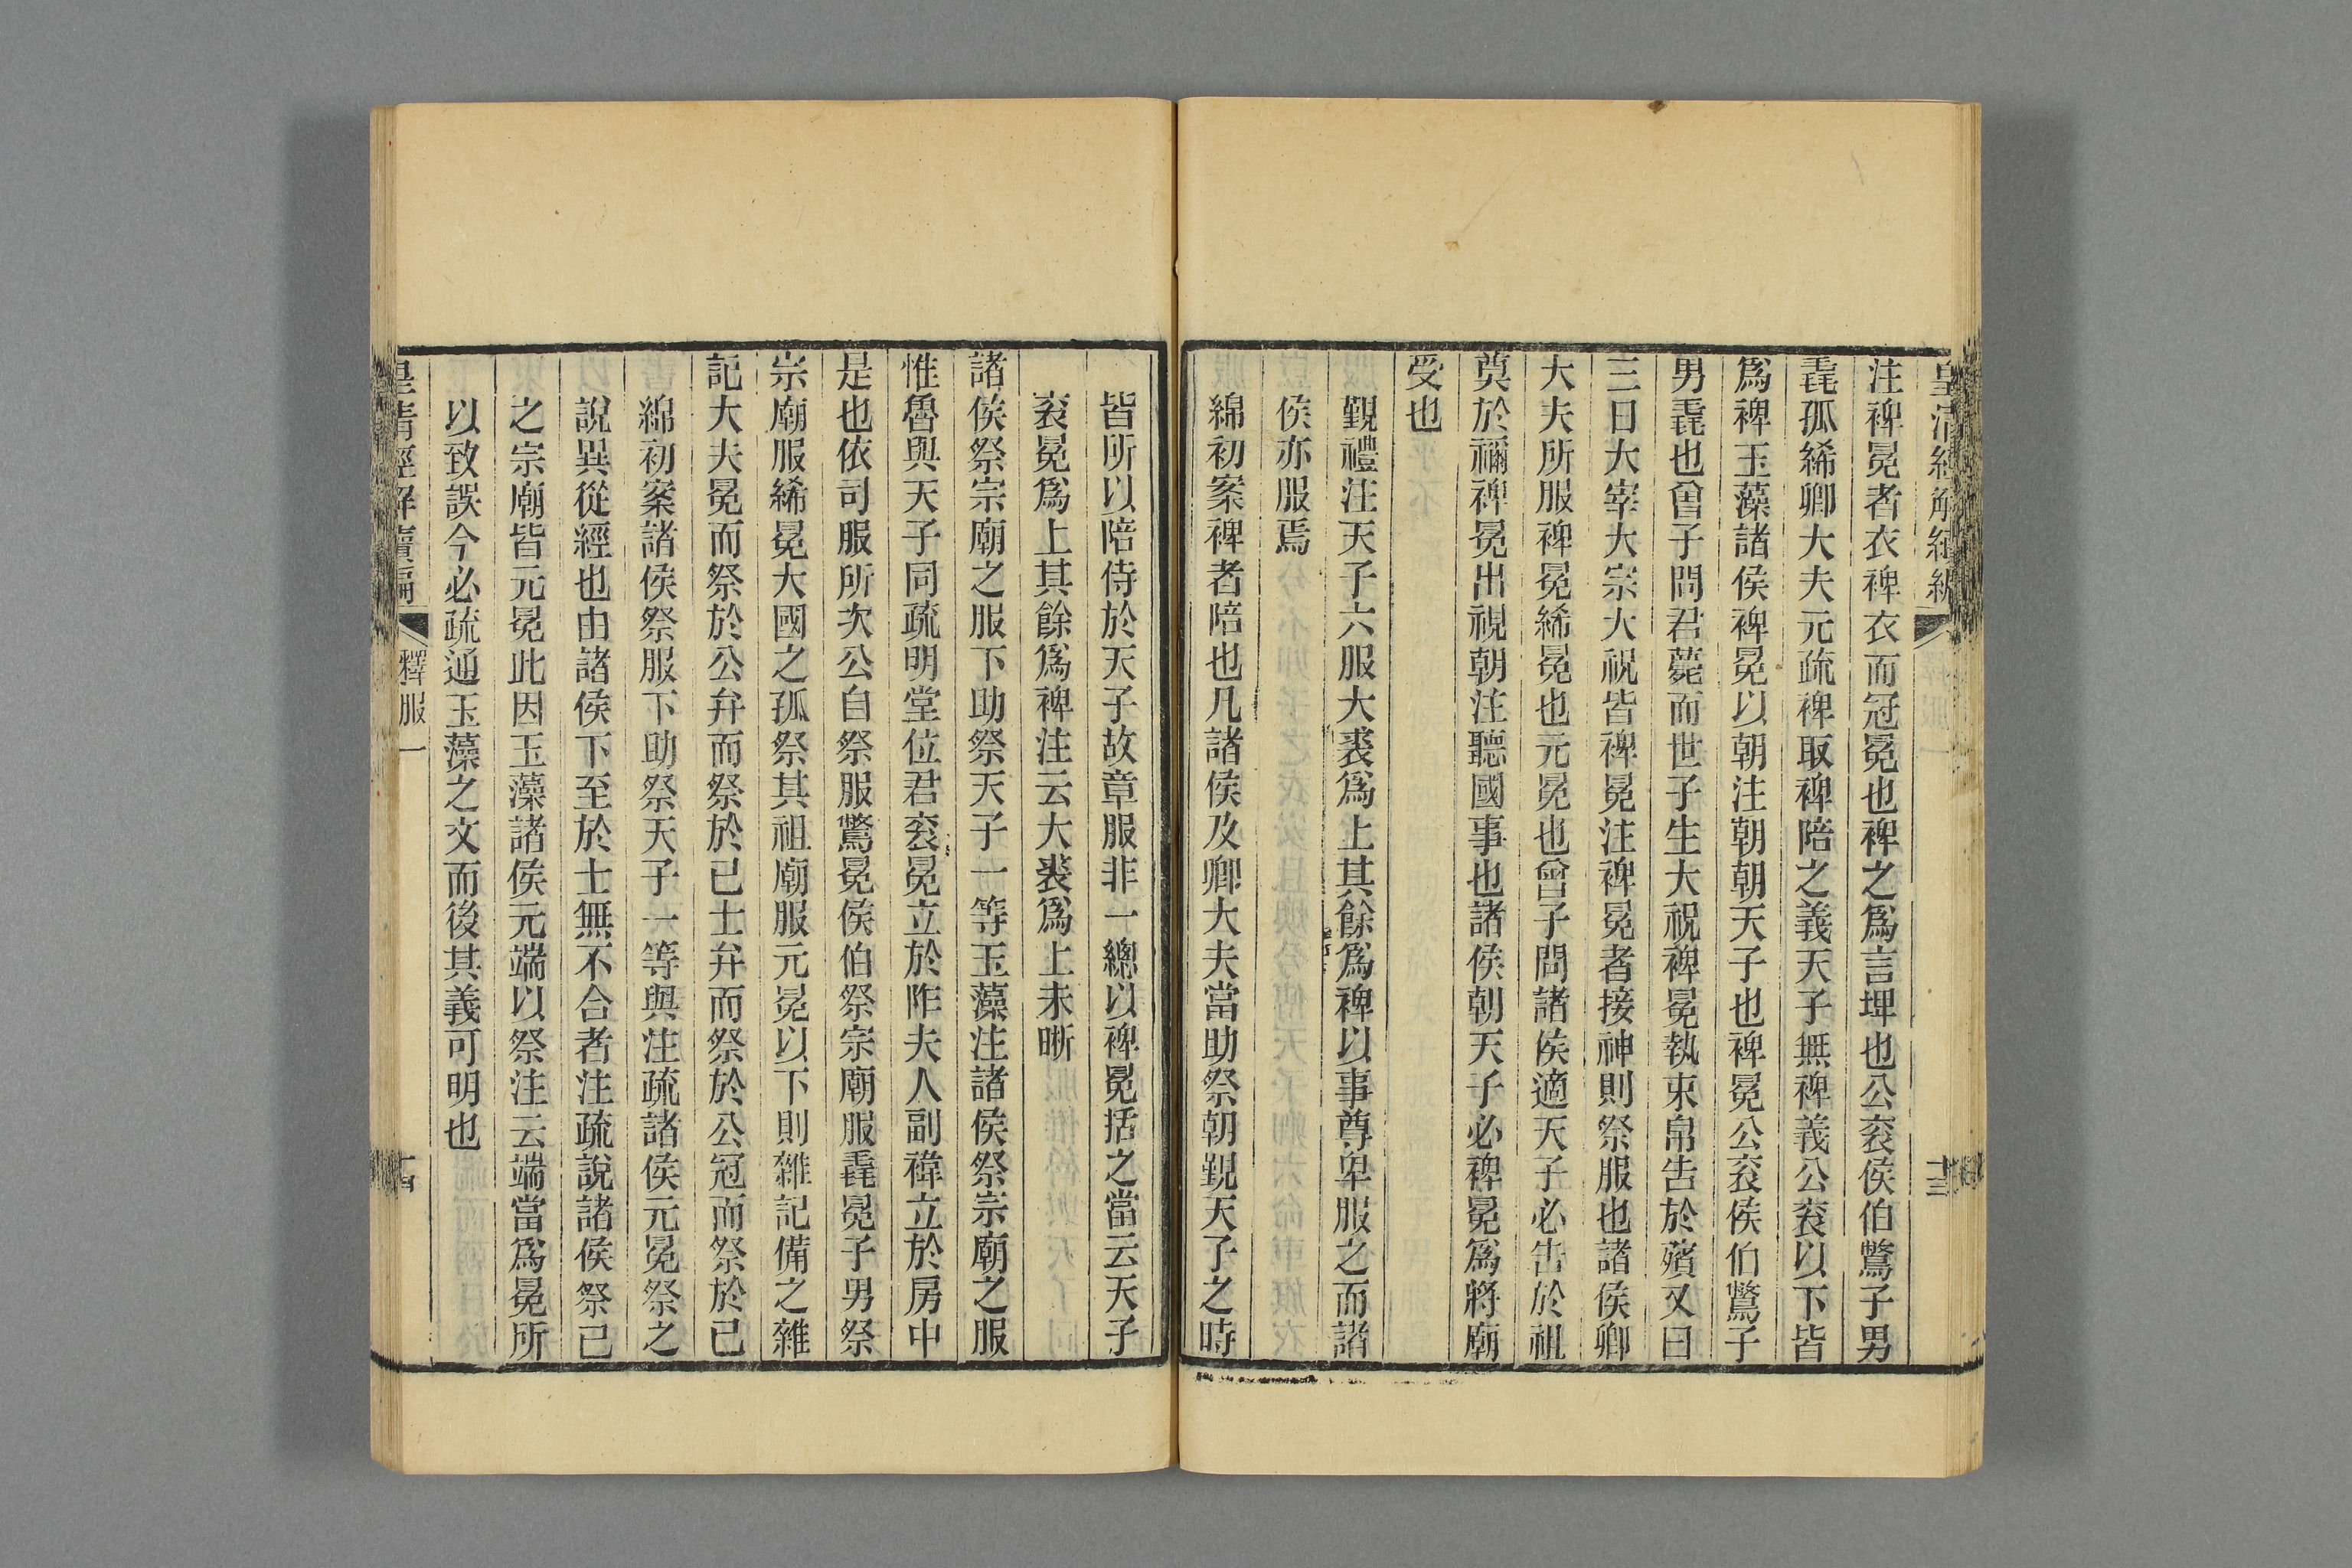 皇清經解續編
十三
注裨冕者衣裨衣而冠冕也裨之爲言埤也公衮侯伯鷩子男
毳孤絺卿大夫元疏裨取裨陪之義天子無裨義公衮以下皆
爲裨玉藻諸侯裨冕以朝注朝朝天子也裨冕公衮侯伯鷩子
男毳也曾子問君薨而世子生大祝裨冕執束帛告於殯又曰
三日大宰大宗大祝皆裨冕注裨冕者接神則祭服也諸侯卿
大夫所服裨冕絺冕也元冕也曾子問諸侯適天子必告於祖
奠於禰裨冕出視朝注聽國事也諸侯朝天子必裨冕爲將廟
受也
覲禮注天子六服大裘爲上其餘爲裨以事尊卑服之而諸
侯亦服焉
綿初案裨者陪也凡諸侯及卿大夫當助祭朝覲天子之時
皆所以陪侍於天子故章服非一總以裨冕括之當云天子
衮冕爲上其餘爲裨注云大裘爲上未晰
諸侯祭宗廟之服下助祭天子一等玉藻注諸侯祭宗廟之服
惟魯與天子同疏明堂位君衮冕立於阼夫人副褘立於房中
是也依司服所次公自祭服鷩冕侯伯祭宗廟服毳冕子男祭
宗廟服絺冕大國之孤祭其祖廟服元冕以下則雜記備之雜
記大夫冕而祭於公弁而祭於已士弁而祭於公冠而祭於已
綿初案諸侯祭服下助祭天子一等與注疏諸侯元冕祭之
說異從經也由諸侯下至於士無不合者注疏說諸侯祭已
之宗廟皆元冕此因玉藻諸侯元端以祭注云端當爲冕所
以致誤今必疏通玉藻之文而後其義可明也
皇清經解續編
釋服一
十四